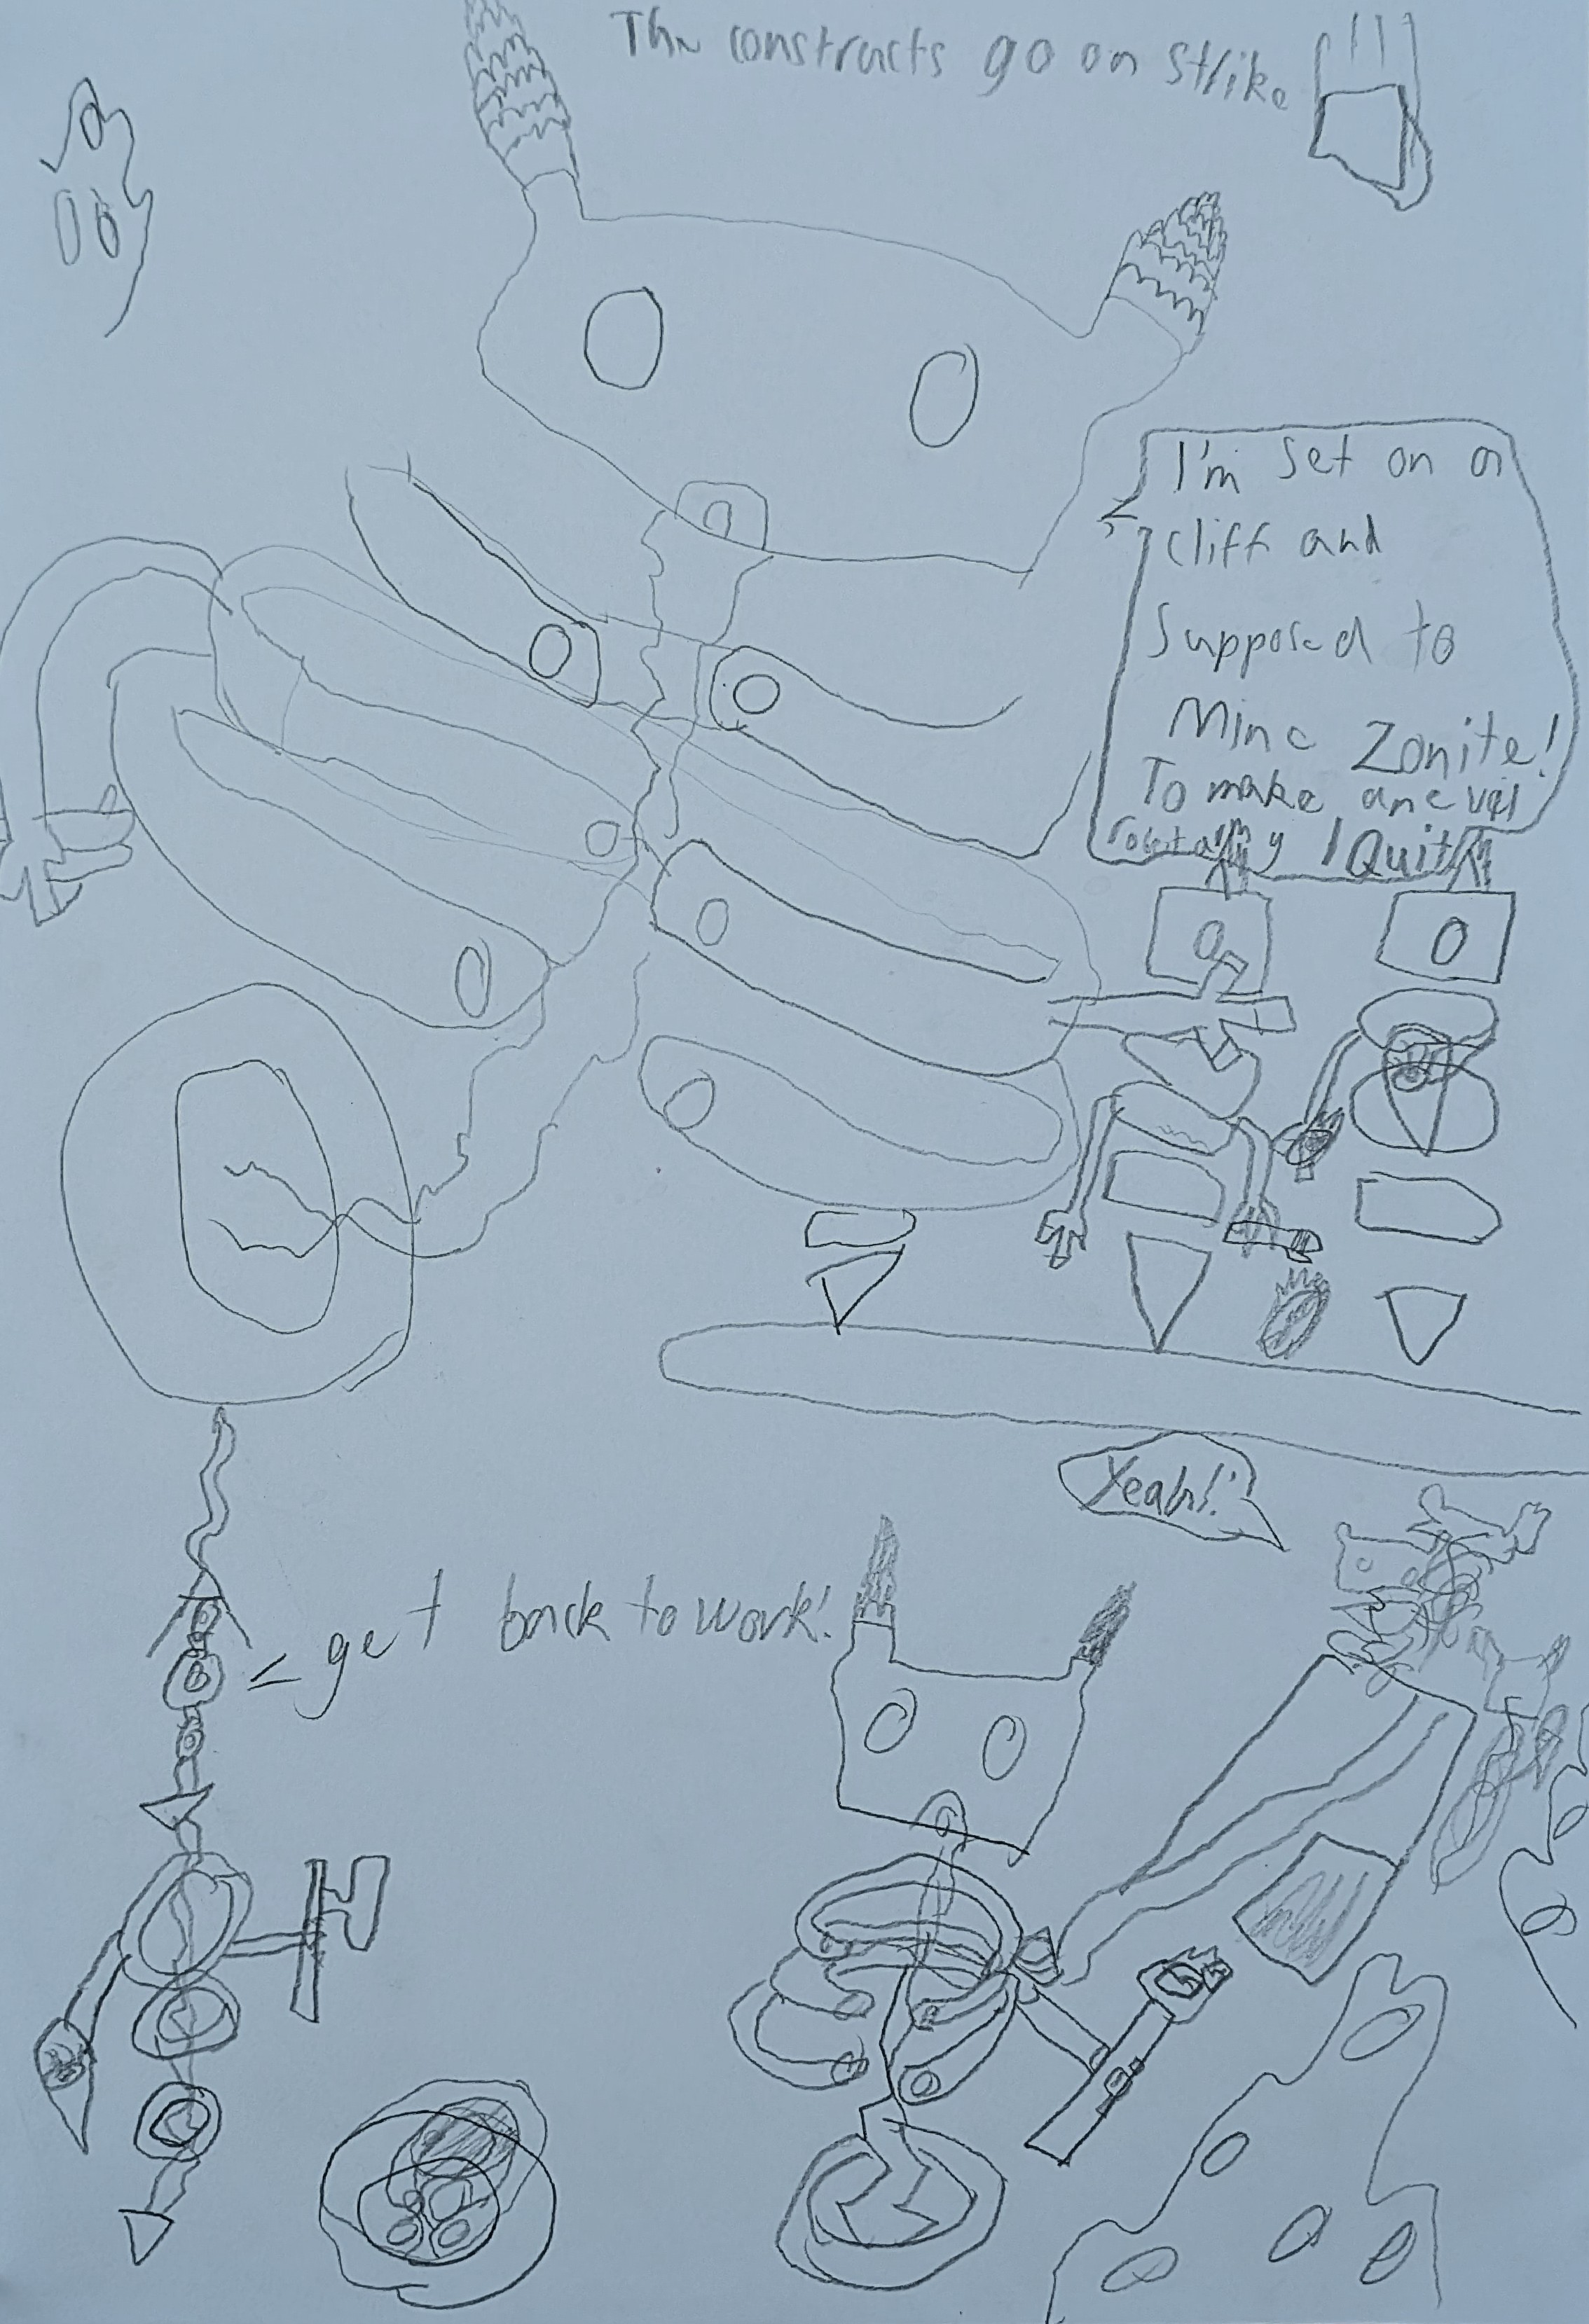 The constructs go on strike
I'm set on a
cliff and
Supposed to
Mine Zonite!
To make an evil
I Quit
Yeah!
get back to work!